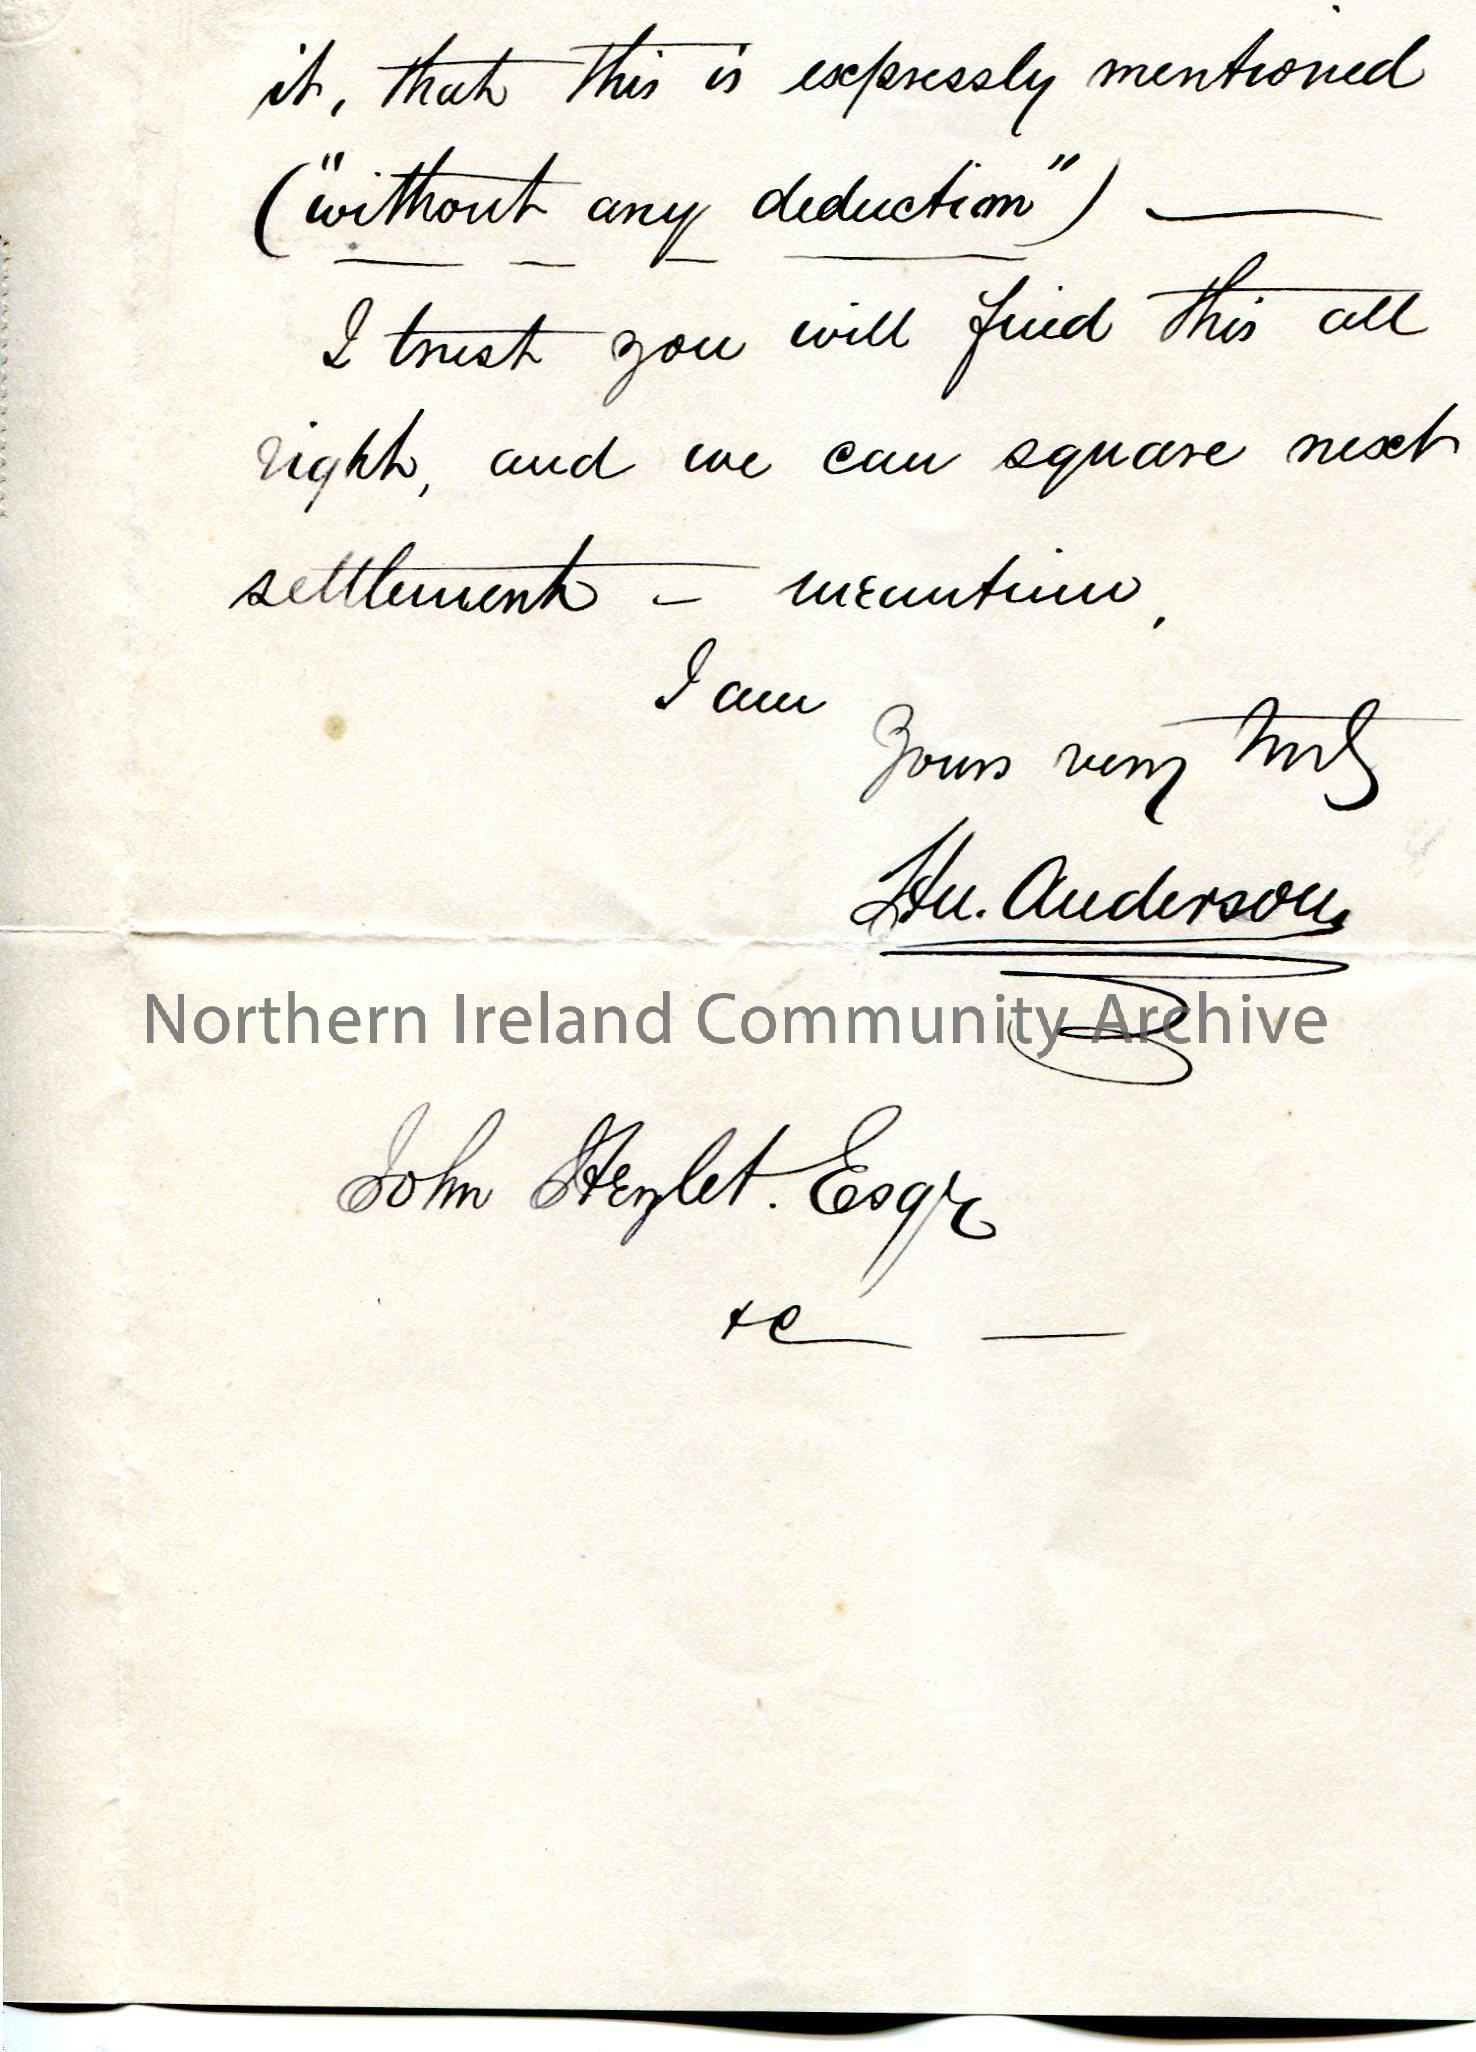 it, that this is expressly mentioned
("without any deduction") —
I trust you will find this all
right, and we can square next
settlement – meantime,
I am
Yours very truly
Hu. Anderson
Northern Ireland Community Archive
John Hezlet. Esqr
&c — —